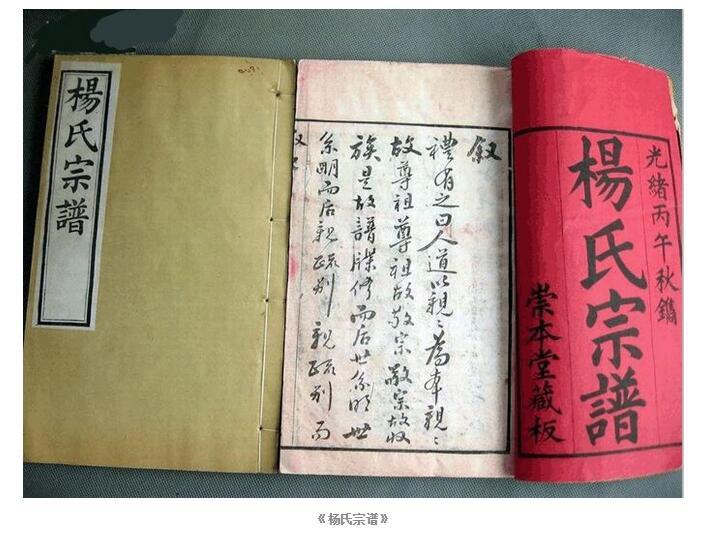 楊氏宗譜
叙
禮有之曰人道以親〻為本親〻
故尊祖尊祖故敬宗敬宗故收
族是故譜牒修而后世系明世
系明而后親疏别親疏别而
光緒丙午秋鐫
楊氏宗譜
崇本堂藏板
《杨氏宗谱》